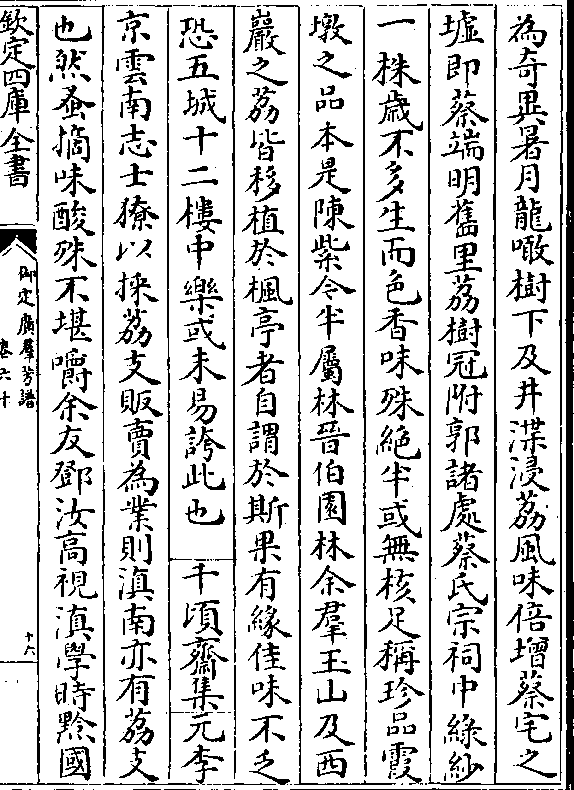 為奇異暑月龍噉樹下及井渫浸荔風味倍增蔡宅之
墟即蔡端明舊里荔樹冠附郭諸處蔡氏宗祠中綠紗
一株歳不多生而色香味殊絶半或無核足稱珍品霞
墩之品本是陳紫今半屬林晉伯園林余羣玉山及西
巖之荔皆移植於楓亭者自謂於斯果有緣佳味不乏
恐五城十二樓中樂或未易誇此也 千頃齋集元李
京雲南志士獠以採荔支販賣為業則滇南亦有荔支
也然蚤摘味酸殊不堪嚼余友鄧汝高視滇學時黔國
欽定四庫全書
御定廣羣芳譜
卷六十
十六